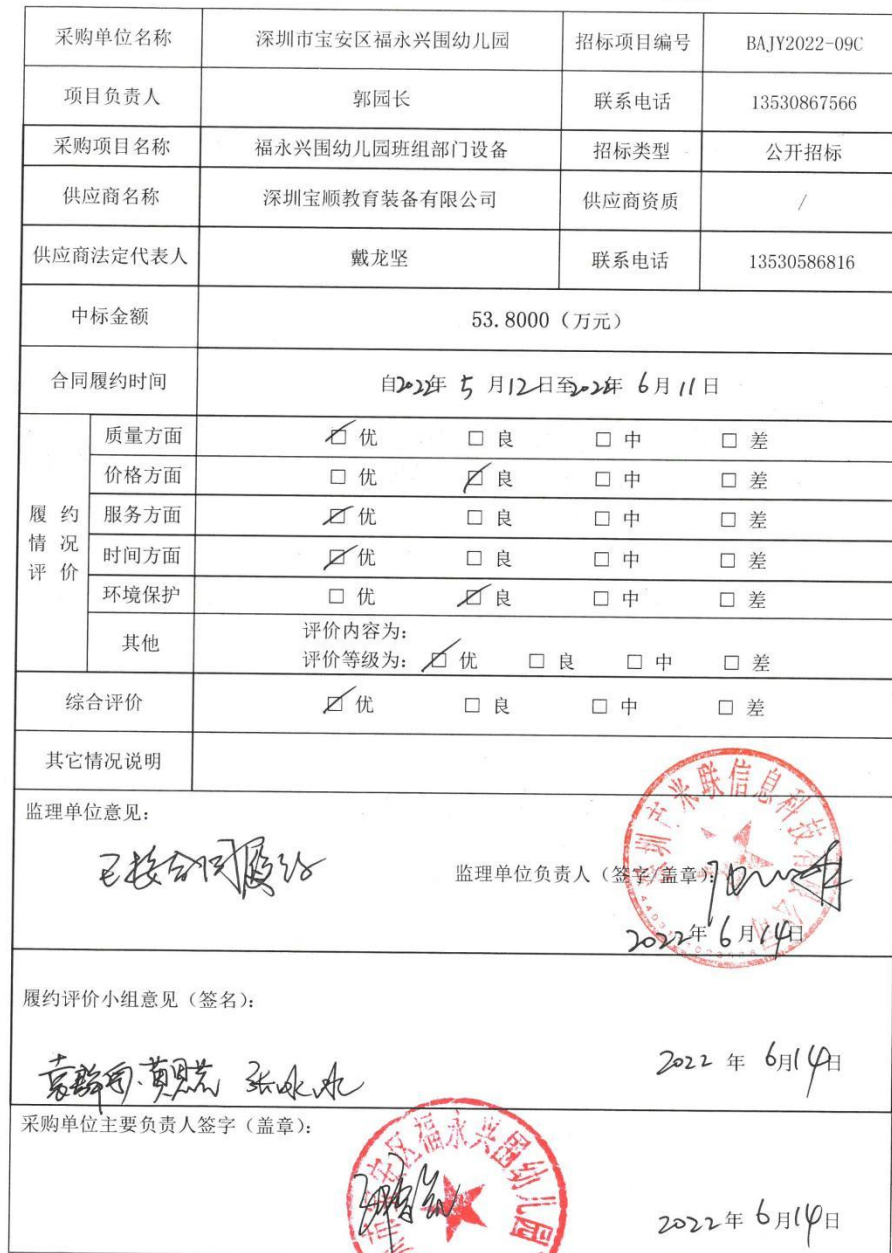 采购单位名称 深圳市宝安区福永兴围幼儿园 招标项目编号 BAJY2022-09C
项目负责人 郭园长 联系电话 13530867566
采购项目名称 福永兴围幼儿园班组部门设备 招标类型 公开招标
供应商名称 深圳宝顺教育装备有限公司 供应商资质 /
供应商法定代表人 戴龙坚 联系电话 13530586816
中标金额 53.8000（万元）
合同履约时间 自2022年 5 月12日至2022年 6月11日
履约情况评价
质量方面 ☑ 优 □ 良 □ 中 □ 差
价格方面 □ 优 ☑ 良 □ 中 □ 差
服务方面 ☑ 优 □ 良 □ 中 □ 差
时间方面 ☑ 优 □ 良 □ 中 □ 差
环境保护 □ 优 ☑ 良 □ 中 □ 差
其他 评价内容为：
评价等级为：☑ 优 □ 良 □ 中 □ 差
综合评价 ☑ 优 □ 良 □ 中 □ 差
其它情况说明
监理单位意见：
已按合同履约
监理单位负责人（签字/盖章）：
2022年 6月14日
履约评价小组意见（签名）：
张冰冰 2022 年 6月14日
采购单位主要负责人签字（盖章）：
安区福永兴围幼儿园
2022年 6月14日